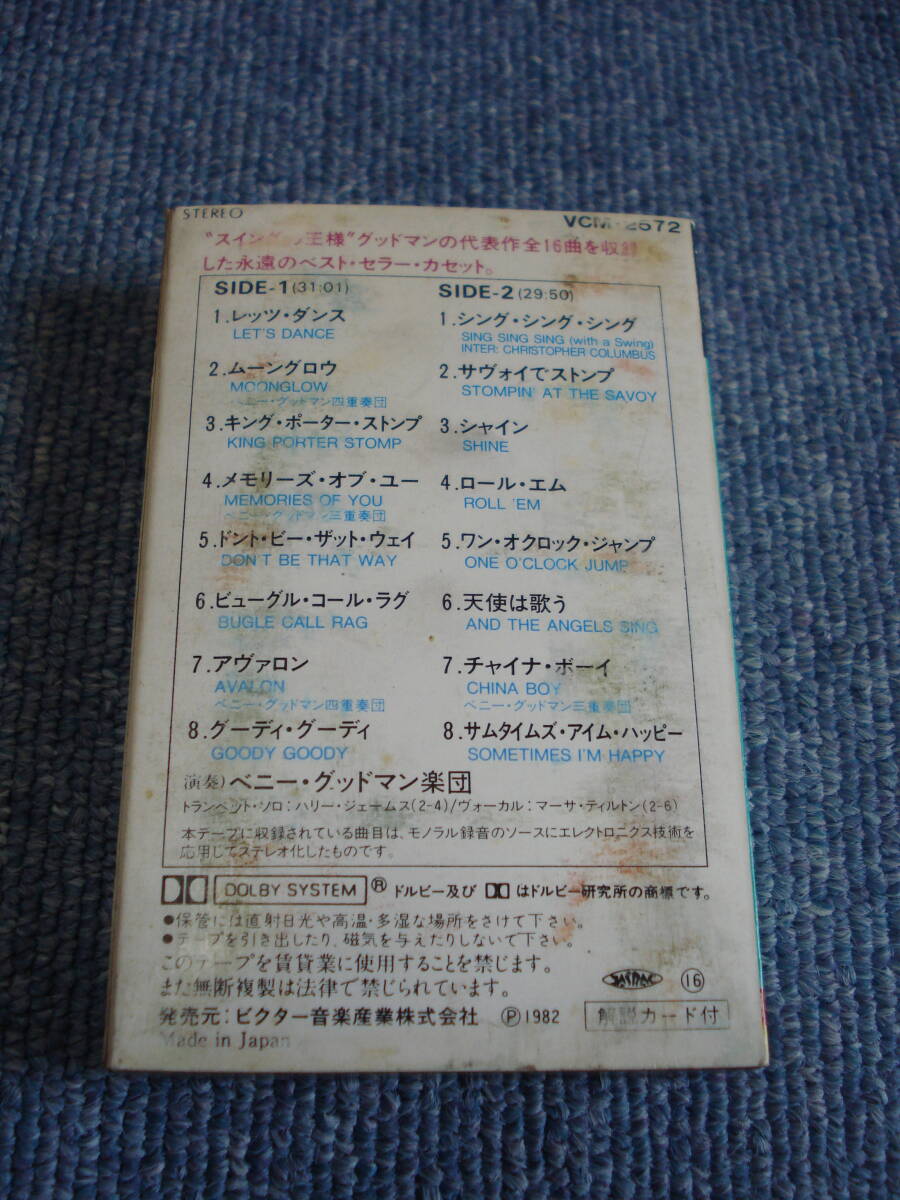 STEREO
VCM-2572
“スイングの王様”グッドマンの代表作全16曲を収録
した永遠のベスト・セラー・カセット。
SIDE-1(31:01)
1.レッツ・ダンス
LET'S DANCE
2.ムーングロウ
MOONGLOW
ベニー・グッドマン四重奏団
3.キング・ポーター・ストンプ
KING PORTER STOMP
4.メモリーズ・オブ・ユー
MEMORIES OF YOU
ベニー・グッドマン三重奏団
5.ドント・ビー・ザット・ウェイ
DON'T BE THAT WAY
6.ビューグル・コール・ラグ
BUGLE CALL RAG
7.アヴァロン
AVALON
ベニー・グッドマン四重奏団
8.グーディ・グーディ
GOODY GOODY
SIDE-2(29:50)
1.シング・シング・シング
SING SING SING (with a Swing)
INTER: CHRISTOPHER COLUMBUS
2.サヴォイでストンプ
STOMPIN' AT THE SAVOY
3.シャイン
SHINE
4.ロール・エム
ROLL 'EM
5.ワン・オクロック・ジャンプ
ONE O'CLOCK JUMP
6.天使は歌う
AND THE ANGELS SING
7.チャイナ・ボーイ
CHINA BOY
ベニー・グッドマン三重奏団
8.サムタイムズ・アイム・ハッピー
SOMETIMES I'M HAPPY
演奏)ベニー・グッドマン楽団
トランペット・ソロ:ハリー・ジェームス(2-4)/ヴォーカル:マーサ・ティルトン(2-6)
本テープに収録されている曲目は、モノラル録音のソースにエレクトロニクス技術を
応用してステレオ化したものです。
DOLBY SYSTEM ® ドルビー及び はドルビー研究所の商標です。
●保管には直射日光や高温・多湿な場所をさけて下さい。
●テープを引き出したり、磁気を与えたりしないで下さい。
このテープを賃貸業に使用することを禁じます。
また無断複製は法律で禁じられています。
JASRAC ⑯
発売元:ビクター音楽産業株式会社 Ⓟ1982 解説カード付
Made in Japan